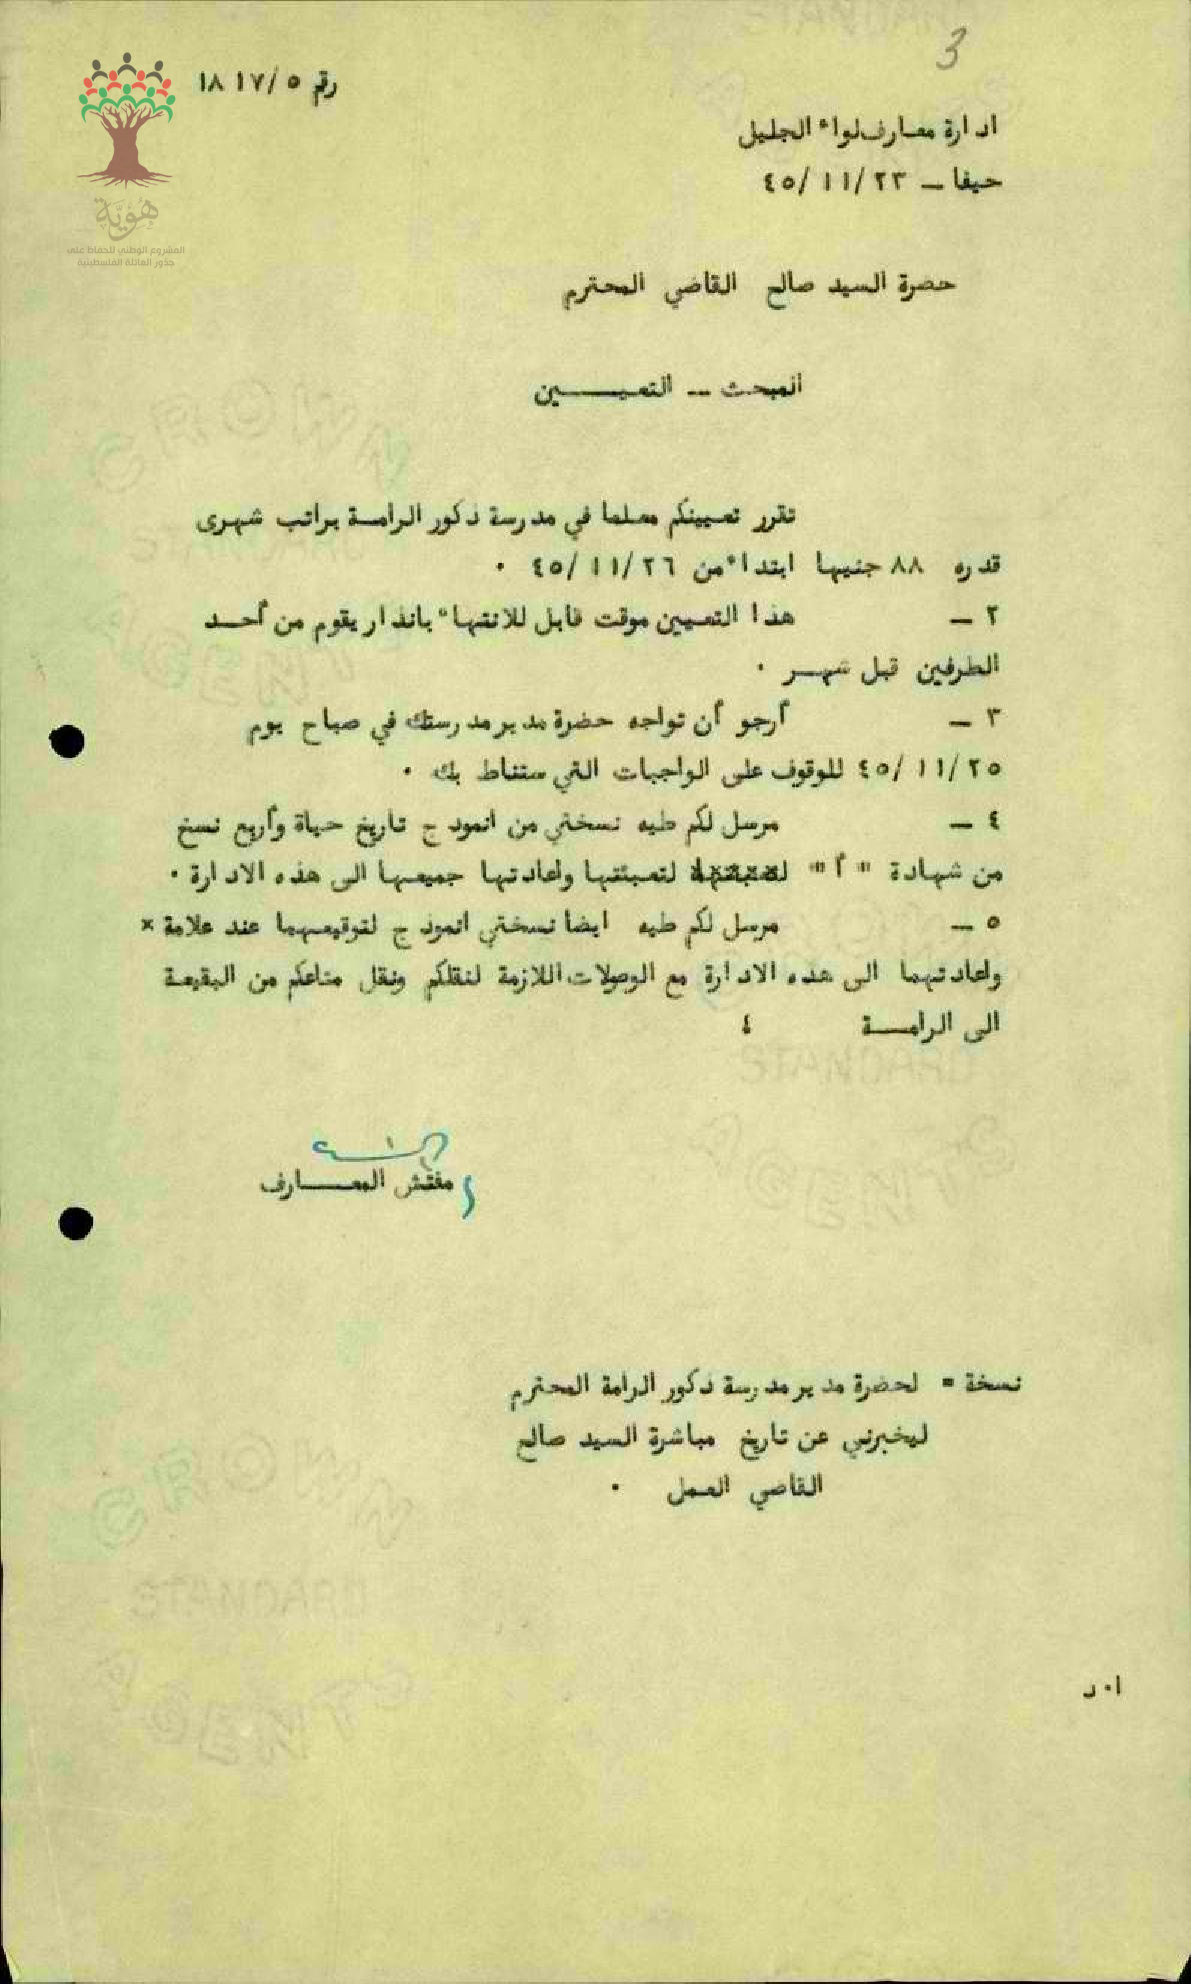 3
رقم ١٨١٧/٥
ادارة معارف لواء الجليل
حيفا – ٤٥/١١/٢٣
هوية
المشروع الوطني للحفاظ على
جذور العائلة الفلسطينية
حضرة السيد صالح القاضي المحترم
المبحث – التعيين
تقرر تعيينكم معلما في مدرسة ذكور الرامة براتب شهرى
قدره ٨٨ جنيها ابتداء من ٤٥/١١/٢٦ ٠
٢ – هذا التعيين موقت قابل للانتهاء بانذار يقوم من أحد
الطرفين قبل شهر ٠
٣ – أرجو أن تواجه حضرة مدير مدرستك في صباح يوم
٤٥/١١/٢٥ للوقوف على الواجبات التي ستناط بك ٠
٤ – مرسل لكم طيه نسختي من انموذج تاريخ حياة وأربع نسخ
من شهادة " أ " لتعبئتها واعادتها جميعها الى هذه الادارة ٠
٥ – مرسل لكم طيه ايضا نسختي انموذج لتوقيعهما عند علامة ×
واعادتهما الى هذه الادارة مع الوصولات اللازمة لنقلكم ونقل متاعكم من البقيعة
الى الرامة ٤
مفتش المعارف
نسخة = لحضرة مدير مدرسة ذكور الرامة المحترم
ليخبرني عن تاريخ مباشرة السيد صالح
القاضي العمل ٠
ا٠د
CROWN
STANDARD
AGENTS
CROWN
STANDARD
AGENTS
STANDARD